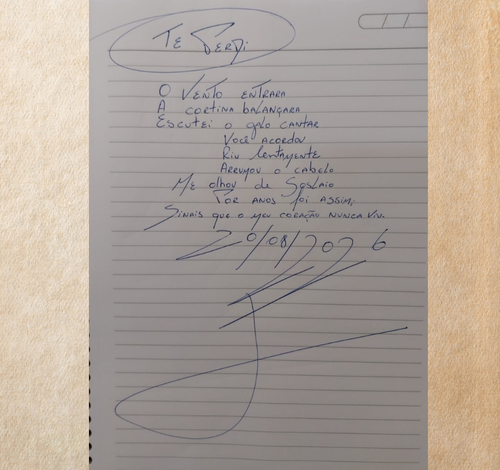 Te Perdi
O Vento entrara
A cortina balançara
Escutei o galo cantar
Você acordou
Riu lentamente
Arrumou o cabelo
Me olhou de Soslaio
Por anos foi assim,
Sinais que o meu coração nunca viu.
20/08/2026